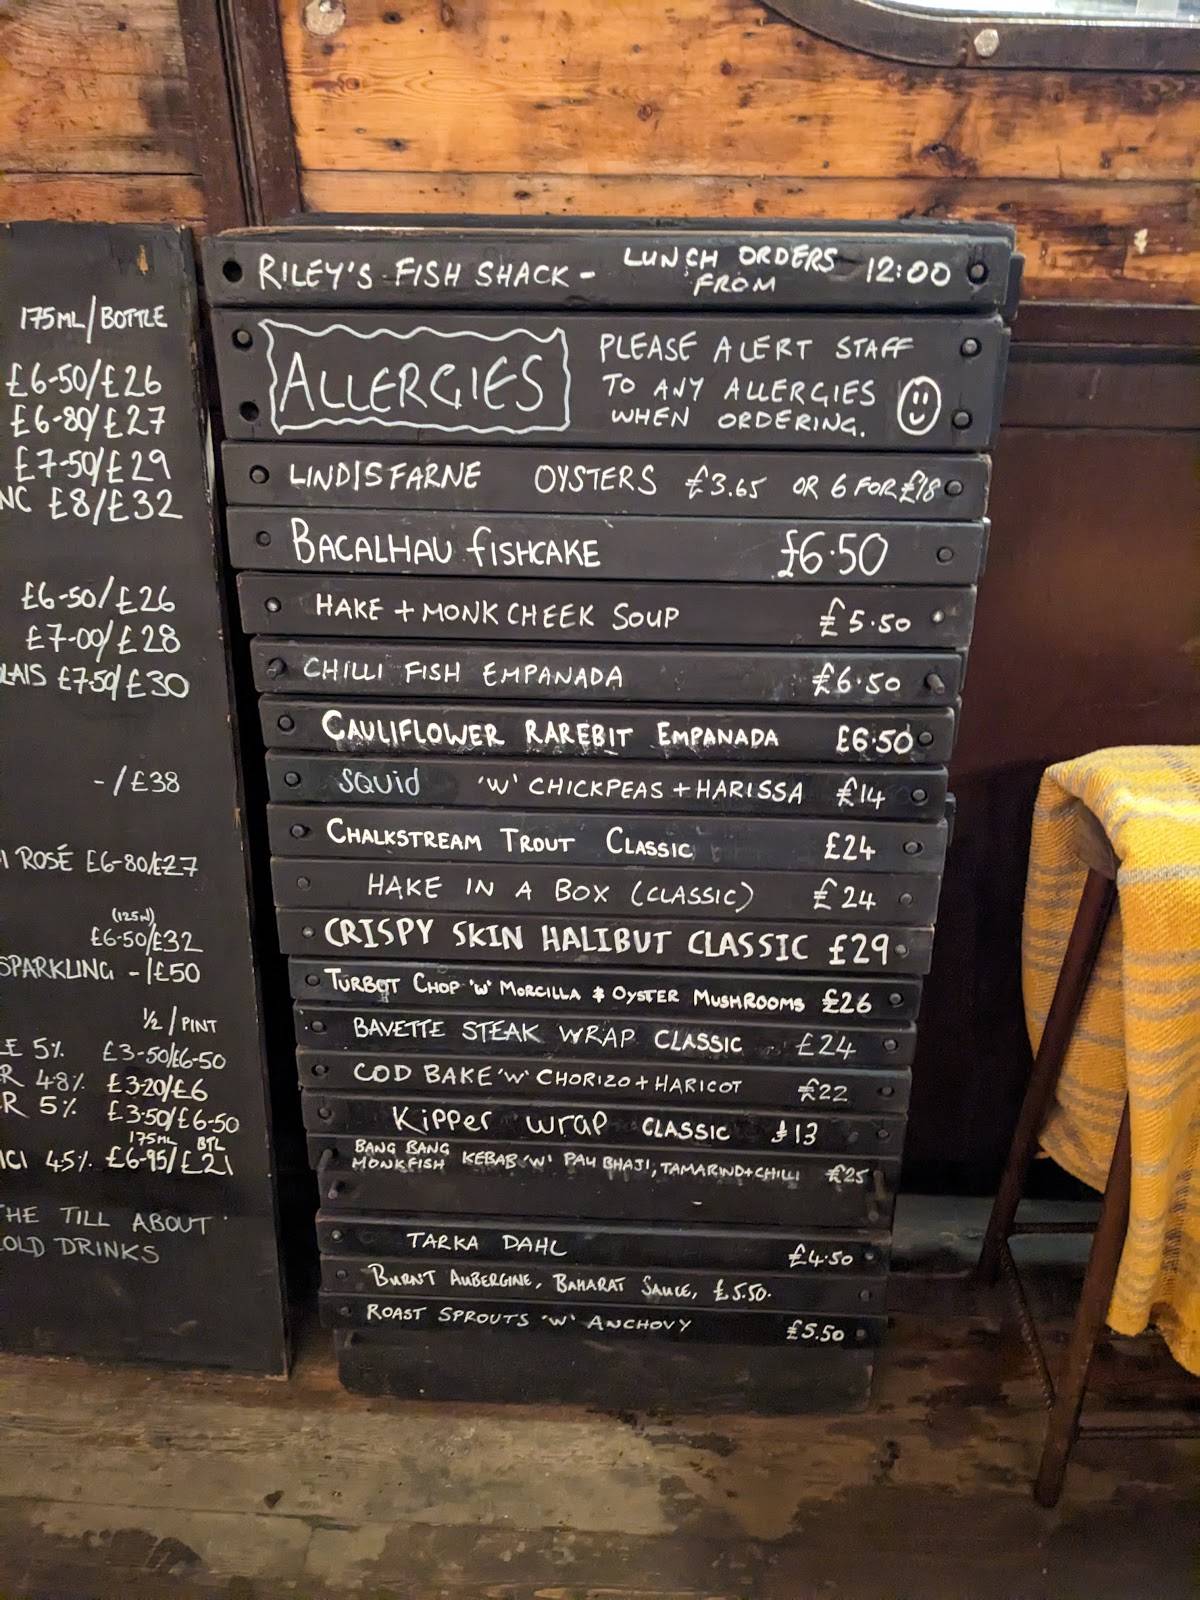 175ML/BOTTLE
£6-50/£26
£6-80/£27
£7-50/£29
NC £8/£32
£6-50/£26
£7-00/£28
LAIS £7-50/£30
-/£38
I ROSÉ £6-80/£27
(125ML)
£6-50/£32
SPARKLING -/£50
1/2 / PINT
LE 5% £3-50/£6-50
R 4.8% £3-20/£6
R 5% £3-50/£6-50
175ML BTL
ICI 4.5% £6-95/£21
THE TILL ABOUT
OLD DRINKS
RILEY'S FISH SHACK - LUNCH ORDERS FROM 12:00
ALLERGIES
PLEASE ALERT STAFF
TO ANY ALLERGIES
WHEN ORDERING.
LINDISFARNE OYSTERS £3.65 OR 6 FOR £18
BACALHAU FISHCAKE £6.50
HAKE + MONK CHEEK SOUP £5.50
CHILLI FISH EMPANADA £6.50
CAULIFLOWER RAREBIT EMPANADA £6.50
SQUID 'W' CHICKPEAS + HARISSA £14
CHALKSTREAM TROUT CLASSIC £24
HAKE IN A BOX (CLASSIC) £24
CRISPY SKIN HALIBUT CLASSIC £29
TURBOT CHOP 'W' MORCILLA & OYSTER MUSHROOMS £26
BAVETTE STEAK WRAP CLASSIC £24
COD BAKE 'W' CHORIZO + HARICOT £22
KIPPER WRAP CLASSIC £13
BANG BANG
MONKFISH KEBAB 'W' PAU BHAJI, TAMARIND + CHILLI £25
TARKA DAHL £4.50
BURNT AUBERGINE, BAHARAT SAUCE, £5.50.
ROAST SPROUTS 'W' ANCHOVY £5.50